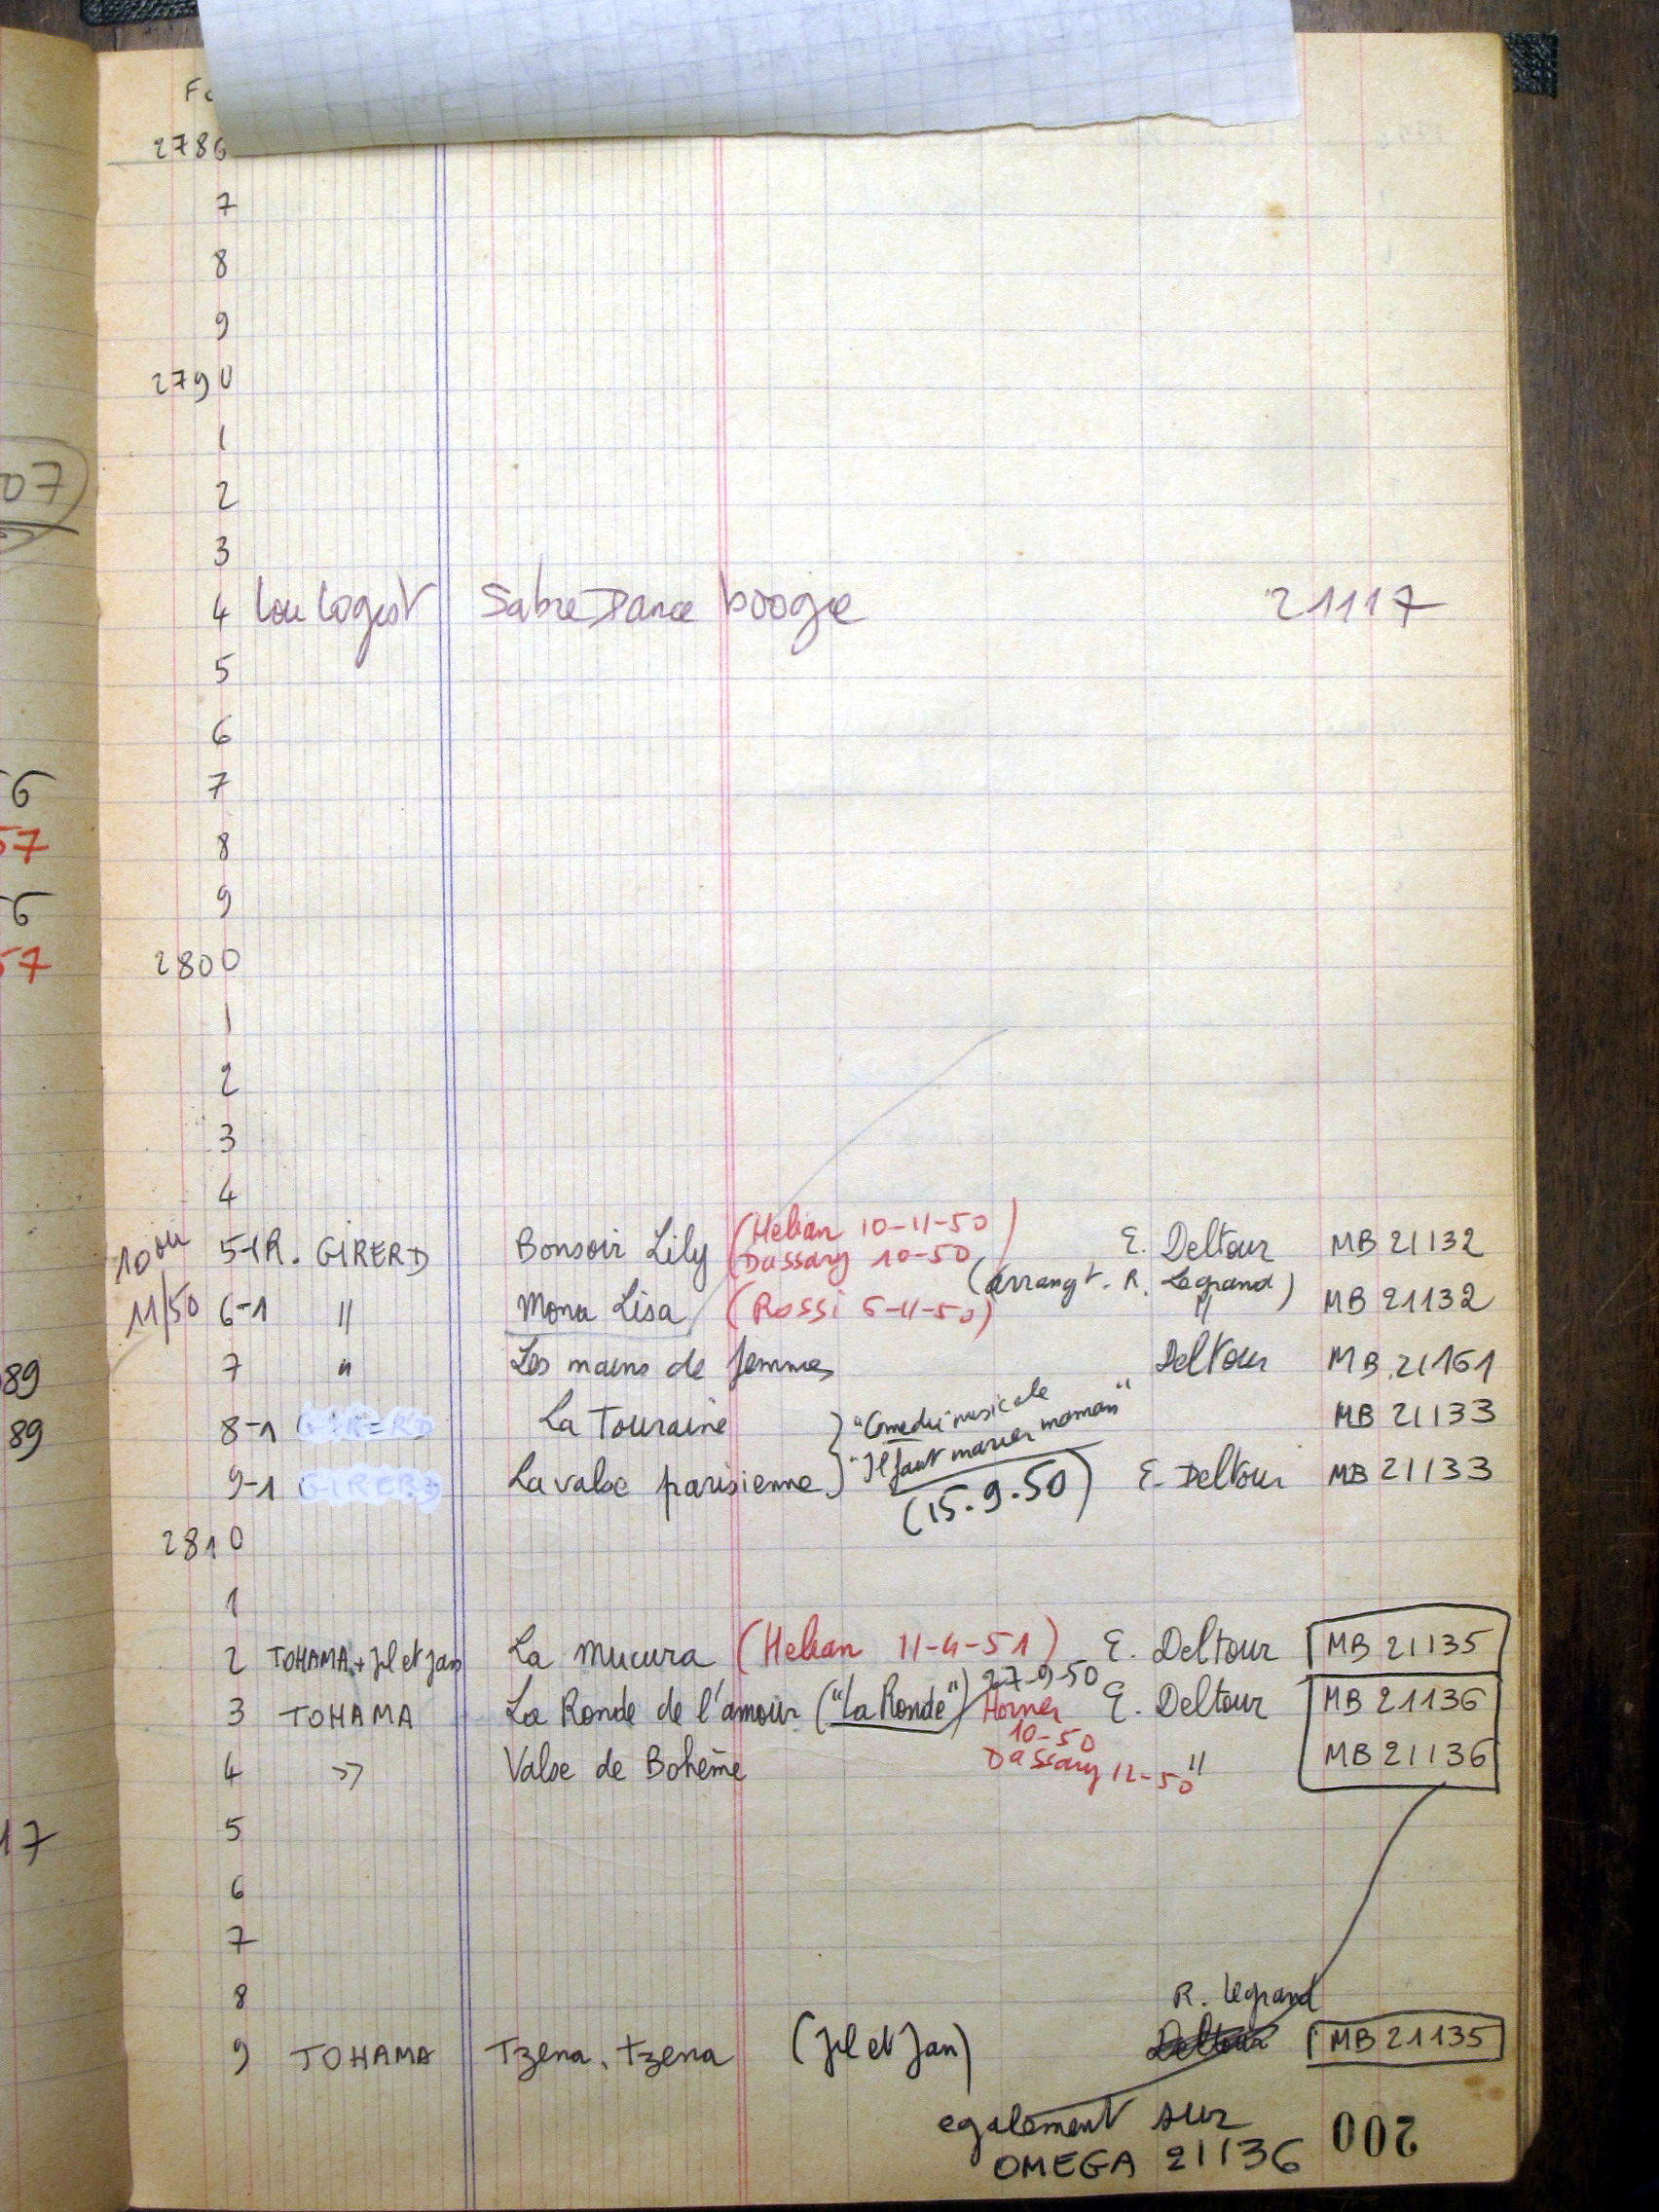 2786
7
8
9
2790
1
2
3
4 Lou Logist Sabre Dance boogie 21117
5
6
7
8
9
2800
1
2
3
4
10 ou 5-1 R. GIRERD Bonsoir Lily (Helian 10-11-50) E. Deltour MB 21132
Dassary 10-50 (arrangt. R. Legrand)
11/50 6-1 " Mona Lisa (Rossi 6-11-50) " MB 21132
7 " Les mains de femmes Deltour MB.21161
8-1 GIRERD La Touraine } "Comédie musicale MB 21133
9-1 GIRERD La valse parisienne } "Il faut marier maman" E. Deltour MB 21133
(15.9.50)
2810
1
2 TOHAMA + Jil et Jan La Mucura (Helian 11-4-51) E. Deltour MB 21135
27-9-50
3 TOHAMA La Ronde de l'amour ("La Ronde") Horner E. Deltour MB 21136
10-50
4 >> Valse de Bohême Dassary 12-50 " MB 21136
5
6
7
8
R. Legrand
9 TOHAMA Tzena, tzena (Jil et Jan) Deltour MB 21135
egalement sur
OMEGA 21136
200
07
6
57
6
57
89
89
17